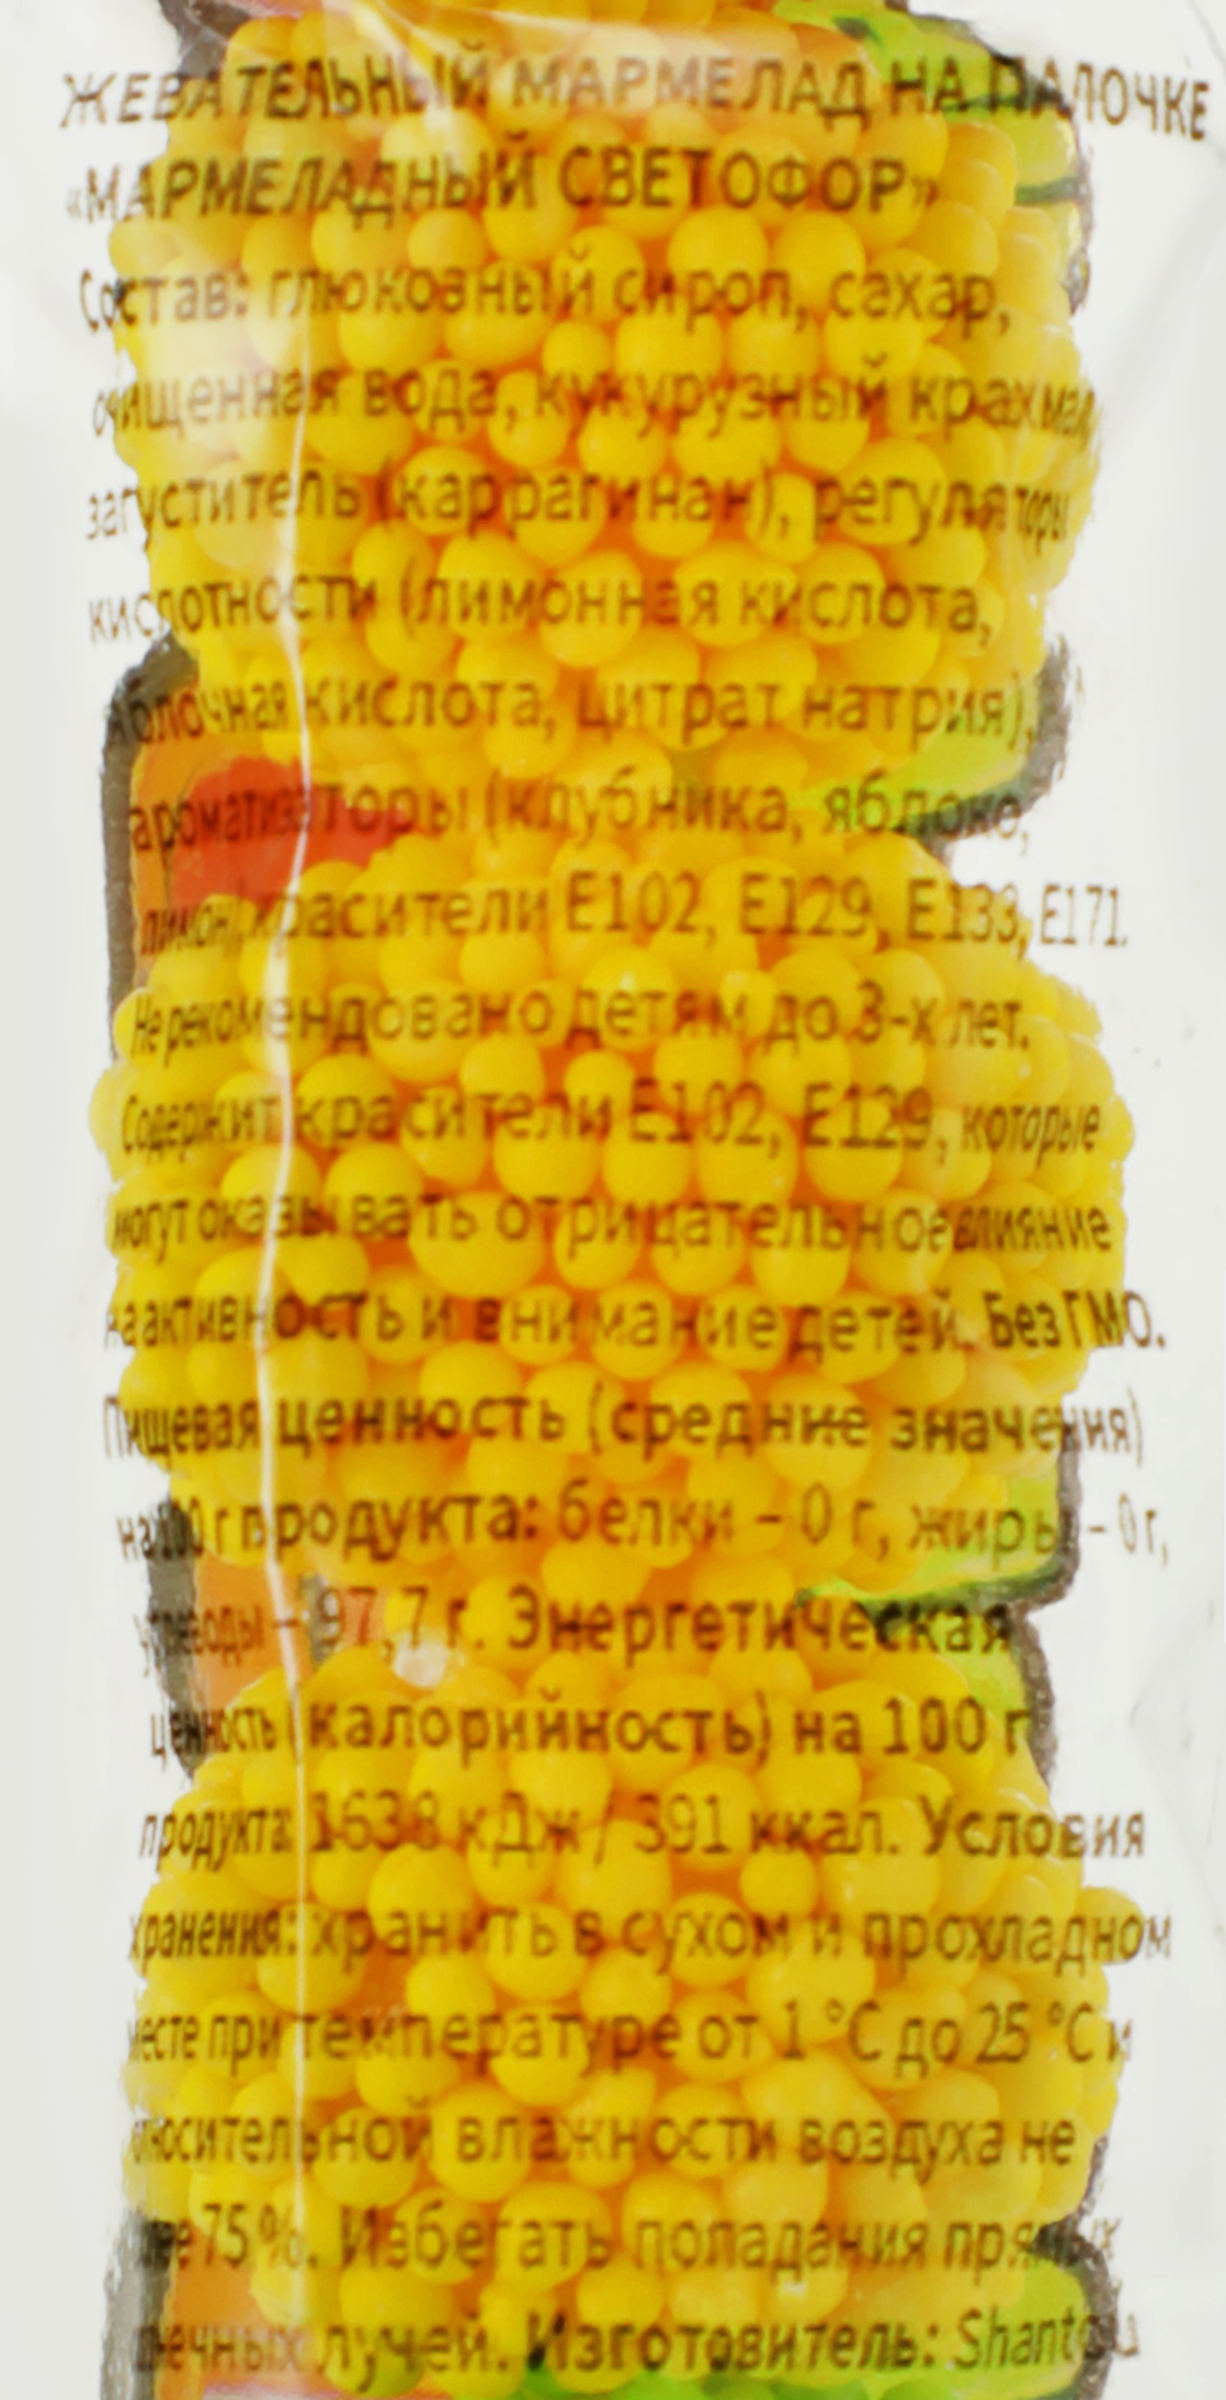 ЖЕВАТЕЛЬНЫЙ МАРМЕЛАД НА ПАЛОЧКЕ
«МАРМЕЛАДНЫЙ СВЕТОФОР»
Состав: глюкозный сироп, сахар,
очищенная вода, кукурузный крахмал,
загуститель (каррагинан), регуляторы
кислотности (лимонная кислота,
яблочная кислота, цитрат натрия),
ароматизаторы (клубника, яблоко,
лимон), красители E102, E129, E133, E171.
Не рекомендовано детям до 3-х лет.
Содержит красители E102, E129, которые
могут оказывать отрицательное влияние
на активность и внимание детей. Без ГМО.
Пищевая ценность (средние значения)
на 100 г продукта: белки – 0 г, жиры – 0 г,
углеводы – 97,7 г. Энергетическая
ценность (калорийность) на 100 г
продукта: 1638 кДж / 391 ккал. Условия
хранения: хранить в сухом и прохладном
месте при температуре от 1 °C до 25 °C и
относительной влажности воздуха не
75 %. Избегать попадания прямых
лучей. Изготовитель: Shantou